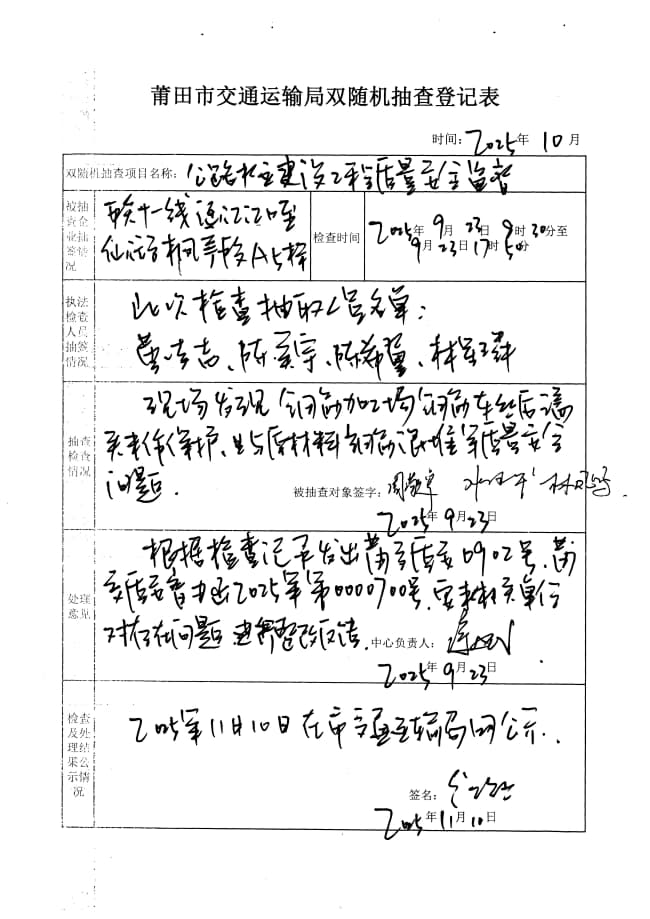 莆田市交通运输局双随机抽查登记表
时间：2025年10月
双随机抽查项目名称：公路水运建设工程质量安全监督
被抽查企业抽签情况
联十一线涵江江口至
仙游枫亭段A5标
检查时间
2025年9月23日9时30分至
9月23日17时50分
执法检查人员抽签情况
此次检查抽取人员名单：
陈
抽查检查情况
现场发现钢筋加工场钢筋车丝后端
头未作保护，且与原材料钢筋混堆等质量安全
问题.
被抽查对象签字：
2025年9月23日
处理意见
根据检查记录发出莆交质安0902号，莆
交质安督办函2025年第0000700号，要求相关单位
对存在问题进行整改反馈.
中心负责人：
2025年9月23日
检查及处理结果公示情况
2025年11月10日在市交通运输局网公示.
签名：
2025年11月10日